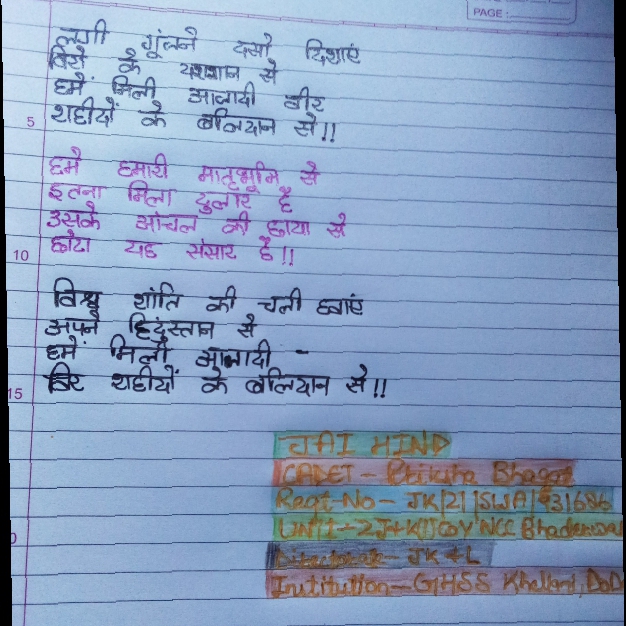 PAGE:
लगी गूंजने दसो दिशाएं
विरो के यशगान से
हमें मिली आजादी वीर
5 शहीदों के बलिदान से!!
हमे हमारी मातृभूमि से
इतना मिला दुलार है
उसके आंचल की छाया से
10 छोटा यह संसार है!!
विश्व शांति की चली हवाएं
अपने हिंदुस्तान से
हमें मिली आजादी -
15 विर शहीदों के बलिदान से!!
JAI HIND
CADET - Bhagat
Regt No - JK/21/SWA/
UNIT - 2 J+K NCC
Directorate - JK & L
Institution - GHSS